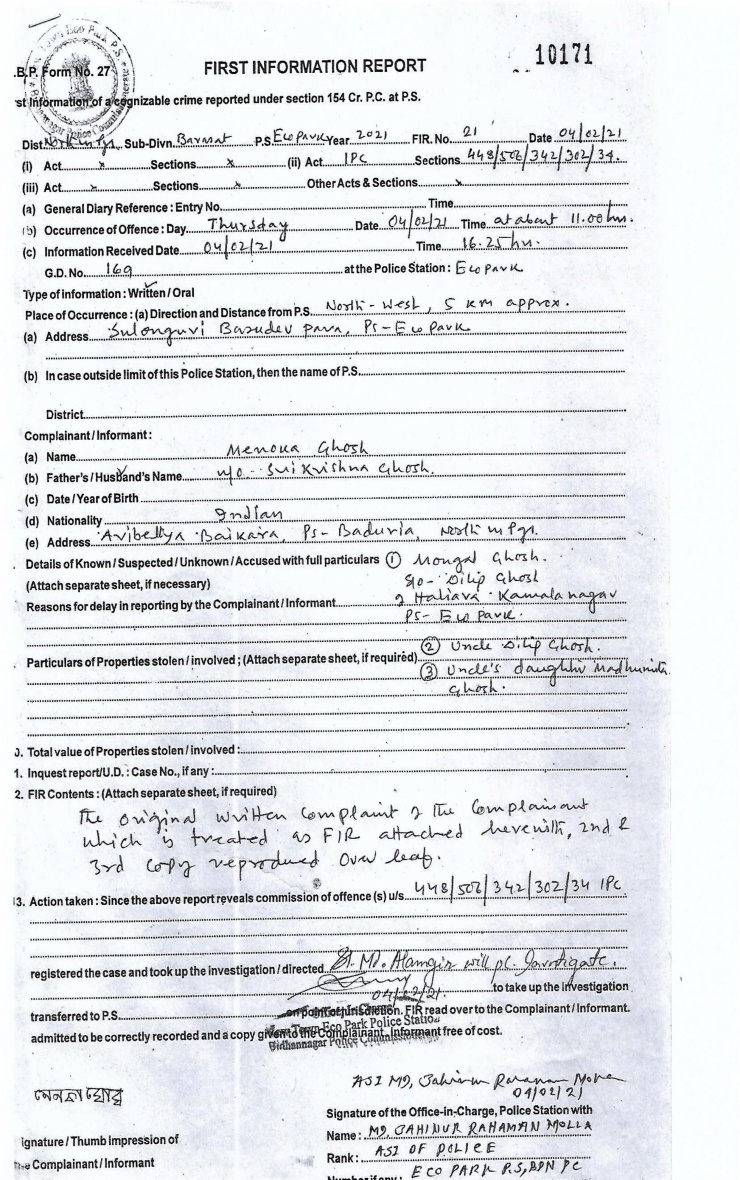 10171
B.P. Form No. 27
FIRST INFORMATION REPORT
st Information of a cognizable crime reported under section 154 Cr. P.C. at P.S.
Dist. North Sub-Divn. Barasat P.S. Eco Park Year 2021 FIR. No. 21 Date 04/02/21
(i) Act x Sections x (ii) Act IPC Sections 448/506/342/302/34.
(iii) Act x Sections x Other Acts & Sections x
(a) General Diary Reference : Entry No. Time
(b) Occurrence of Offence : Day Thursday Date 04/02/21 Time at about 11.00 hrs.
(c) Information Received Date 04/02/21 Time 16.25 hrs.
G.D. No. 169 at the Police Station : Eco Park
Type of information : Written / Oral
Place of Occurrence : (a) Direction and Distance from P.S. North-West, 5 km approx.
(a) Address Sulonguri Basudev para, Ps- Eco Park
(b) In case outside limit of this Police Station, then the name of P.S.
District
Complainant / Informant :
(a) Name Menoka Ghosh
(b) Father's / Husband's Name w/o - Sri Krishna Ghosh.
(c) Date / Year of Birth
(d) Nationality Indian
(e) Address Baikara, Ps- Baduria, North
Details of Known / Suspected / Unknown / Accused with full particulars (1) Mongal Ghosh.
(Attach separate sheet, if necessary) S/o - Dilip Ghosh
Reasons for delay in reporting by the Complainant / Informant Hatiara Kamala nagar
Ps- Eco Park.
(2) Uncle Dilip Ghosh.
Particulars of Properties stolen / involved ; (Attach separate sheet, if required) (3) Uncle's daughter Madhumita
Ghosh.
0. Total value of Properties stolen / involved :
1. Inquest report/U.D. : Case No., if any :
2. FIR Contents : (Attach separate sheet, if required)
The original written complaint of the complainant
which is treated as FIR attached herewith, 2nd &
3rd copy reproduced over leaf.
13. Action taken : Since the above report reveals commission of offence (s) u/s 448/506/342/302/34 IPC
registered the case and took up the investigation / directed SI. Md. Alamgir will pl. Investigate.
04/02/21. to take up the investigation
transferred to P.S. on point of jurisdiction. FIR read over to the Complainant / Informant.
admitted to be correctly recorded and a copy given to the Complainant. Informant free of cost.
Eco Park Police Station
Bidhannagar Police
ASI MD. Jahinur Rahaman Molla
04/02/21
মেনকা ঘোষ
Signature of the Office-in-Charge, Police Station with
ignature / Thumb Impression of
Name : MD. JAHINUR RAHAMAN MOLLA
the Complainant / Informant
Rank : ASI OF POLICE
Number if any : ECO PARK P.S, BDN PC